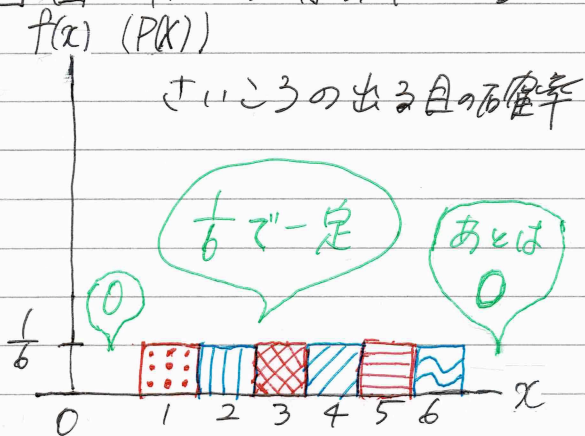 f(x) (P(X))
さいころの出る目の確率
1/6で一定
あとは
0
0
1/6
0 1 2 3 4 5 6 x